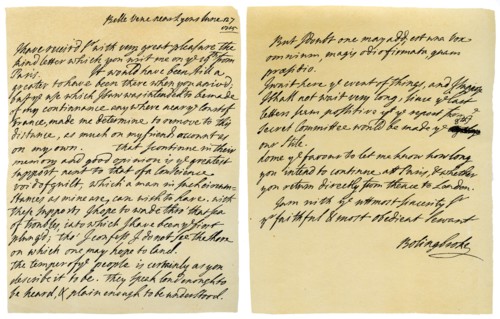 Belle Vene near Lyons June 27
I have receiv'd Sr with very great pleasure the
kind letter which you writ me on ye 13th from
Paris. It would have been still a
greater to have been there when you arrived,
but ye use which I saw was intended to be made
of my continuance any where near ye Coast of
France, made me determine to remove to this
distance, as much on my friends account as
on my own. that I continue in their
memory and good opinion is ye greatest
support next to that of a Conscience
void of guilt, which a man in such circum-
stances as mine are, can wish to have. with
these supports I hope to wade thro' that sea
of troubles, into which I have been at first
plung'd; tho' I confess I do not see the shore
on which one may hope to land.
The temper of ye people is certainly as you
describe it to be. They speak loud enough to
be heard, & plain enough to be understood.
But I doubt one may add, est una vox
omnium, magis odio firmata quam
præsidio.
I wait here ye event of things, and I
I shall not wait very long, since ye last
letters from Paris tell us ye report from ye
Secret Committee would be made ye
our Stile.
do me ye favour to let me know how long
you intend to continue at Paris, & whether
you return directly from thence to London.
I am with ye utmost sincerity Sr
yr faithful & most obedient servant
Bolingbroke